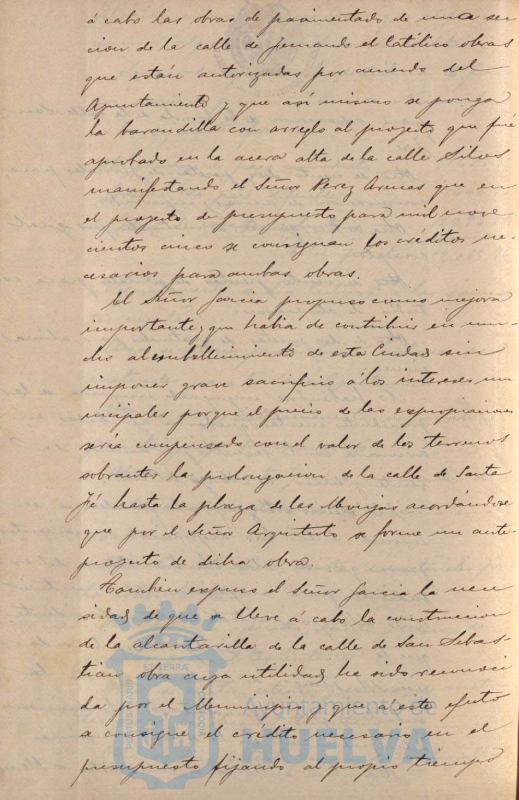 á cabo las obras de pavimentado de una sec
cion de la calle de Fernando el Católico obras
que están autorizadas por acuerdo del
Ayuntamiento y que asi mismo se ponga
la barandilla con arreglo al proyecto que fué
aprobado en la acera alta de la calle Silos
manifestando el Señor Perez Arenas que en
el proyecto de presupuesto para mil nove
cientos cinco se consignan los créditos ne
cesarios para ambas obras.
El Señor Garcia propuso como mejora
importante y que habia de contribuir en mu
cho al embellecimiento de esta Ciudad sin
imponer grave sacrificio á los intereses mu
nicipales porque el precio de las expropiaciones
seria compensado con el valor de los terrenos
sobrantes la prolongacion de la calle de Santa
Fé hasta la plaza de las Monjas acordándose
que por el Señor Arquitecto se forme un ante-
proyecto de dicha obra.
Tambien expuso el Señor Garcia la nece
sidad de que se lleve á cabo la construccion
de la alcantarilla de la calle de San Sebas-
tian obra cuya utilidad ha sido reconoci
da por el Municipio y que á este efecto
se consigne el crédito necesario en el
presupuesto fijando al propio tiempo
Ayuntamiento de
HUELVA